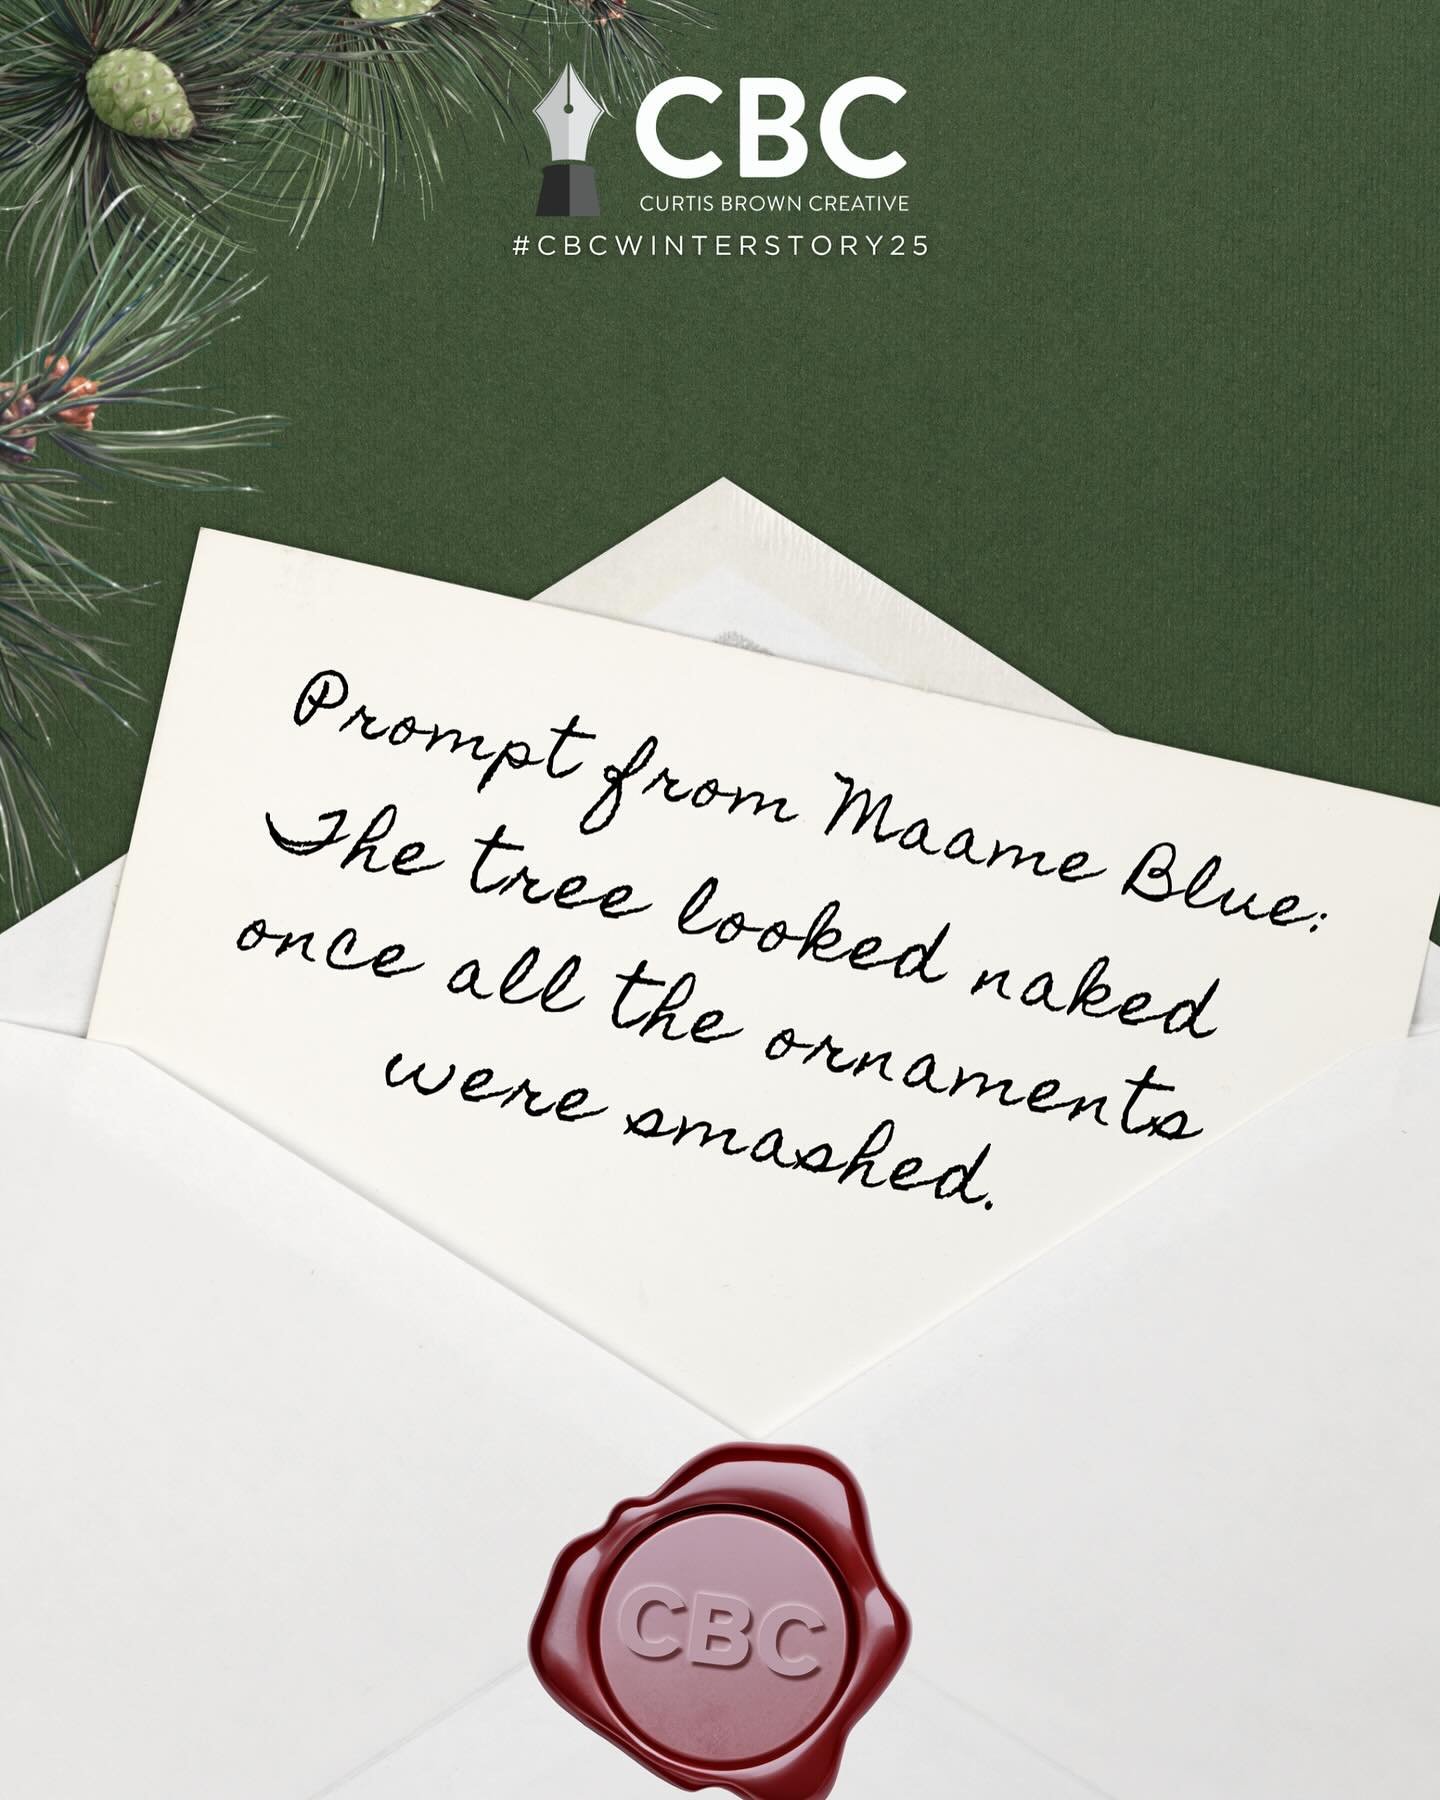 CBC
CURTIS BROWN CREATIVE
#CBCWINTERSTORY25
Prompt from Maame Blue:
The tree looked naked
once all the ornaments
were smashed.
CBC